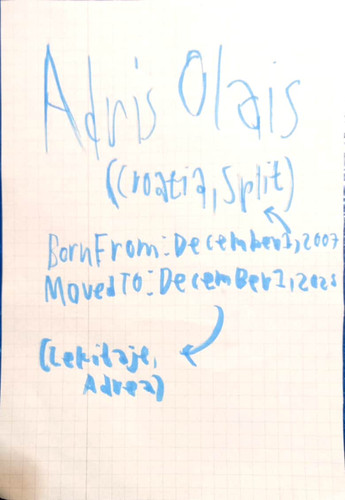 Adris Olais
(Croatia, Split)
Born From: December 1, 2007
Moved To: December 1, 2025
(Lekitaje,
Adrea)